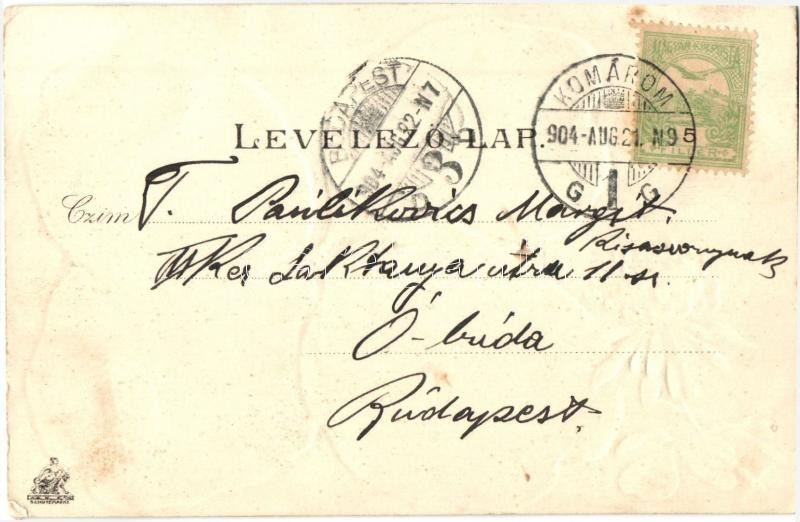 MAGYAR KIR. POSTA
KOMÁROM
904-AUG.21. N9
G 1 G
5
BUDAPEST
904-AUG.22-N7
3
LEVELEZŐ-LAP.
Czim T. Paulikovics Margit
kisasszonynak
III Ker Laktanya utca 11 sz.
Ó-buda
Budapest.
SCHUTZMARKE